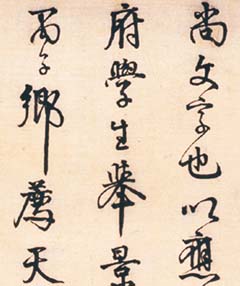 尚文字也以應
府學生舉景
蜀子鄉薦天